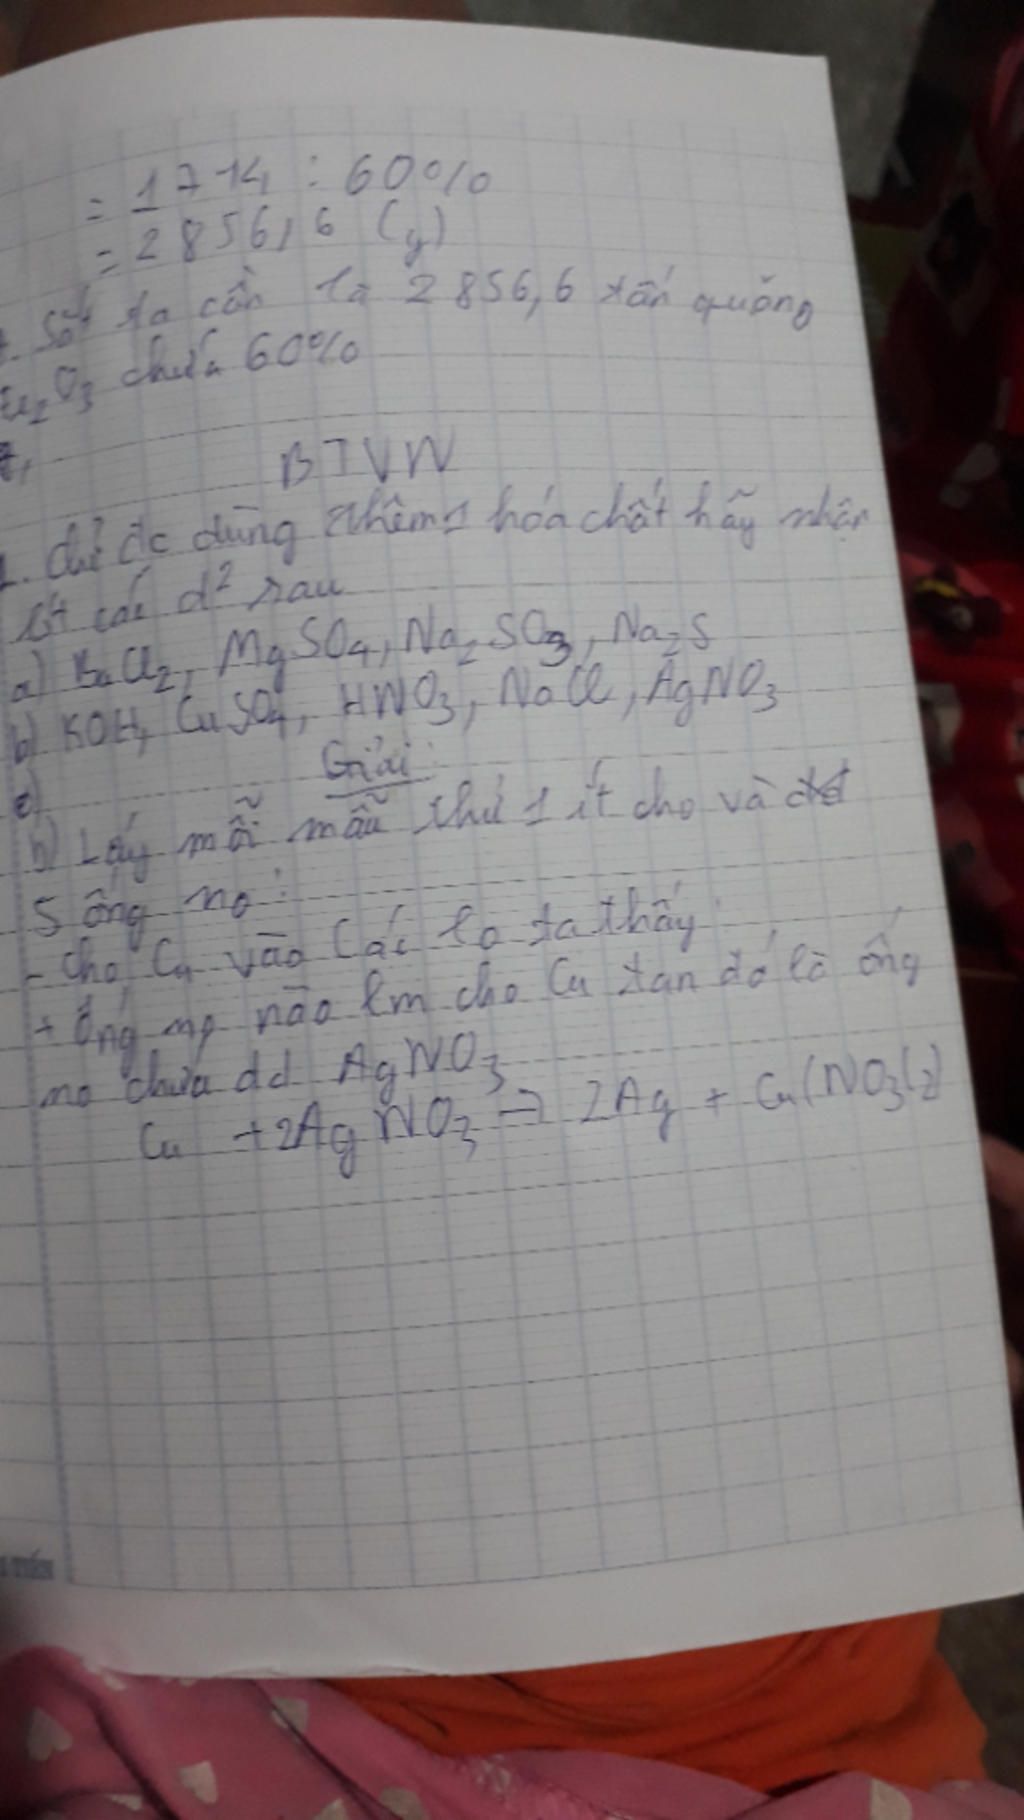 = 1714 : 60%
= 2856,6 (y)
Sắt ta cần là 2856,6 tấn quặng
Fe2O3 chứa 60%
BTVN
1. Chỉ đc dùng thêm 1 hóa chất hãy nhận
bt các d² sau
a) BaCl2, MgSO4, Na2SO3, Na2S
b) KOH, CuSO4, HNO3, NaCl, AgNO3
Giải
b) Lấy mỗi mẫu thử 1 ít cho và
5 ống no:
- Cho Cu vào các lọ ta thấy:
+ Ống no nào lm cho Cu tan đó là ống
no chứa dd AgNO3
Cu + 2AgNO3 → 2Ag + Cu(NO3)2